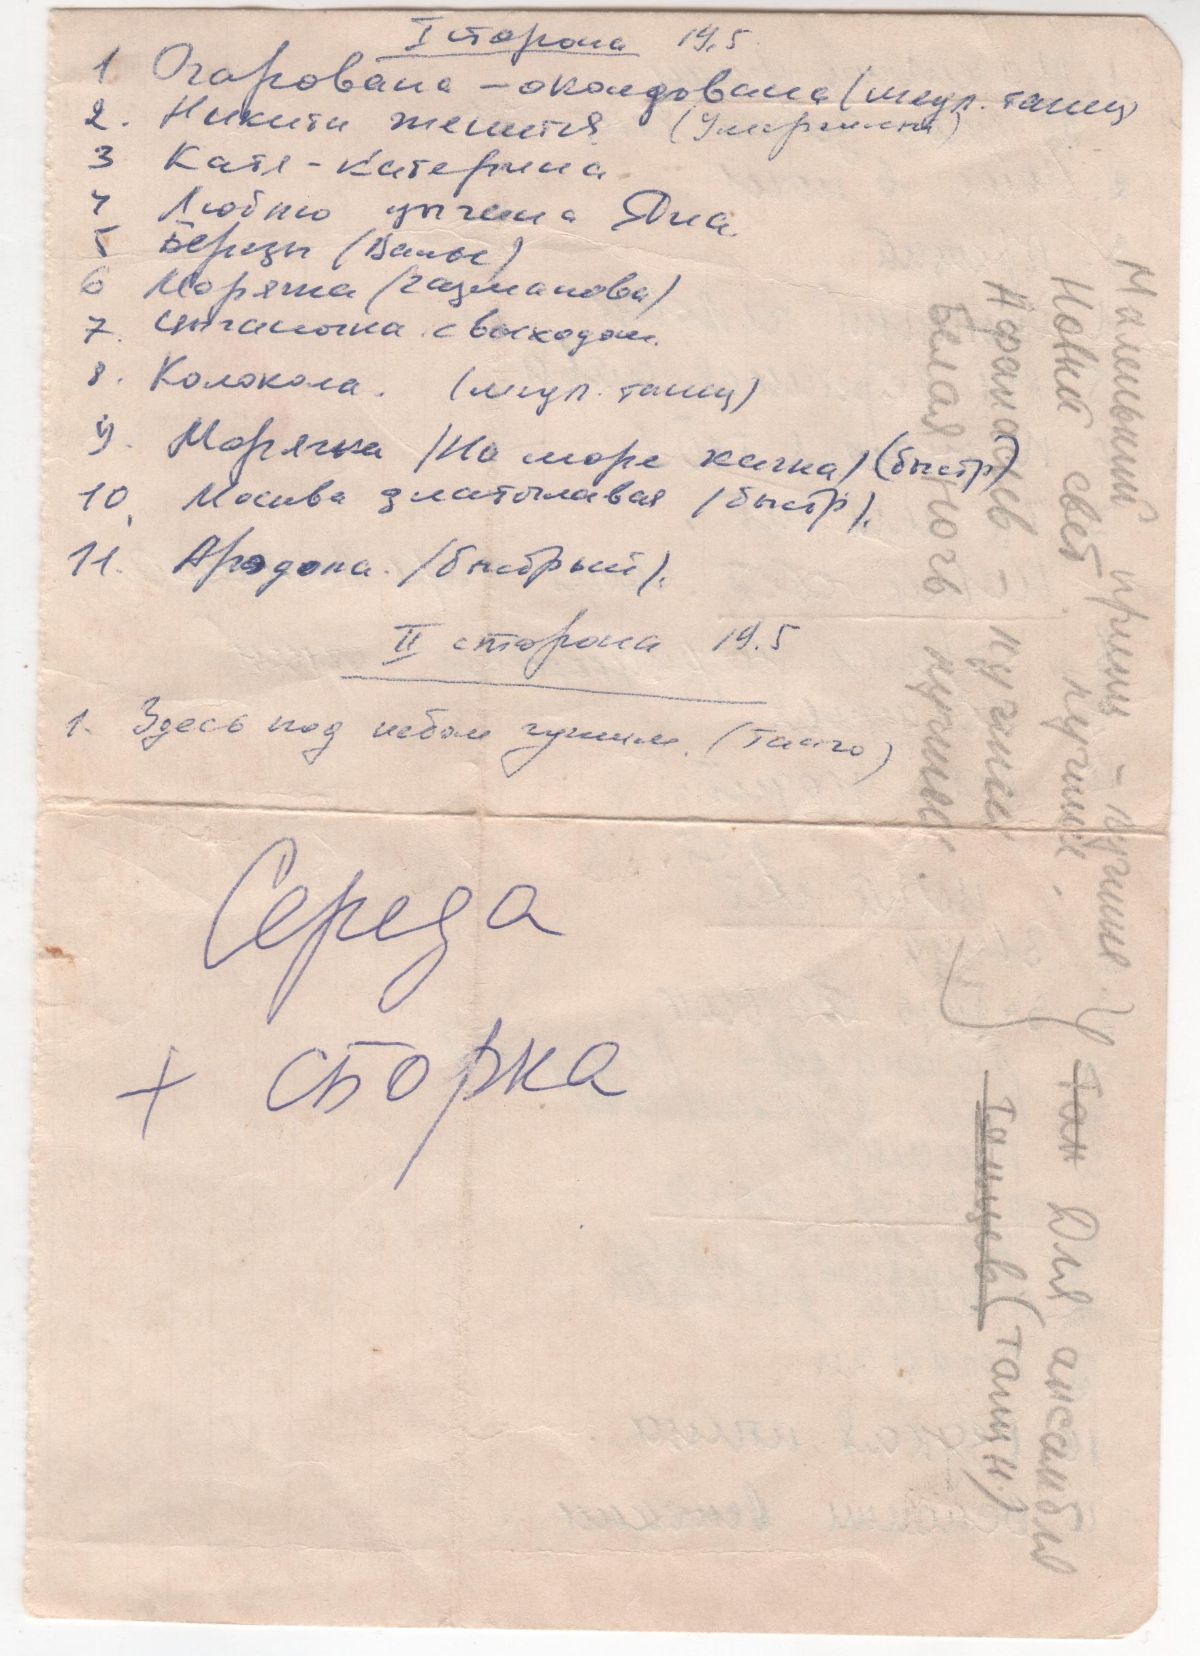 I сторона 19.5
1 Очарована - околдована (медл. танец)
2. Никита женится
3 Катя - Катерина
4 Люблю цыгана Яна.
5 Березы (Вальс)
6 Морячка (Газманова)
7. Цыганочка с выходом.
8. Колокола. (медл. танец)
9. Морячка (На море качка) (быстр)
10. Москва златоглавая (быстр).
11. (быстрый).
II сторона 19.5
1. Здесь под небом чужим. (Танго)
Середа
+ сборка
Маленький принц -
Новый свет.
Афанасьев -
Белая ночь
Для ансамбля
танцев (танцы.)